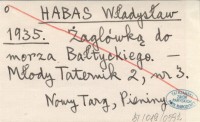 o HABAS Władysław
1935. Żaglówką do
morza Bałtyckiego. —
Młody Taternik 2, nr 3.
Nowy Targ, Pieniny